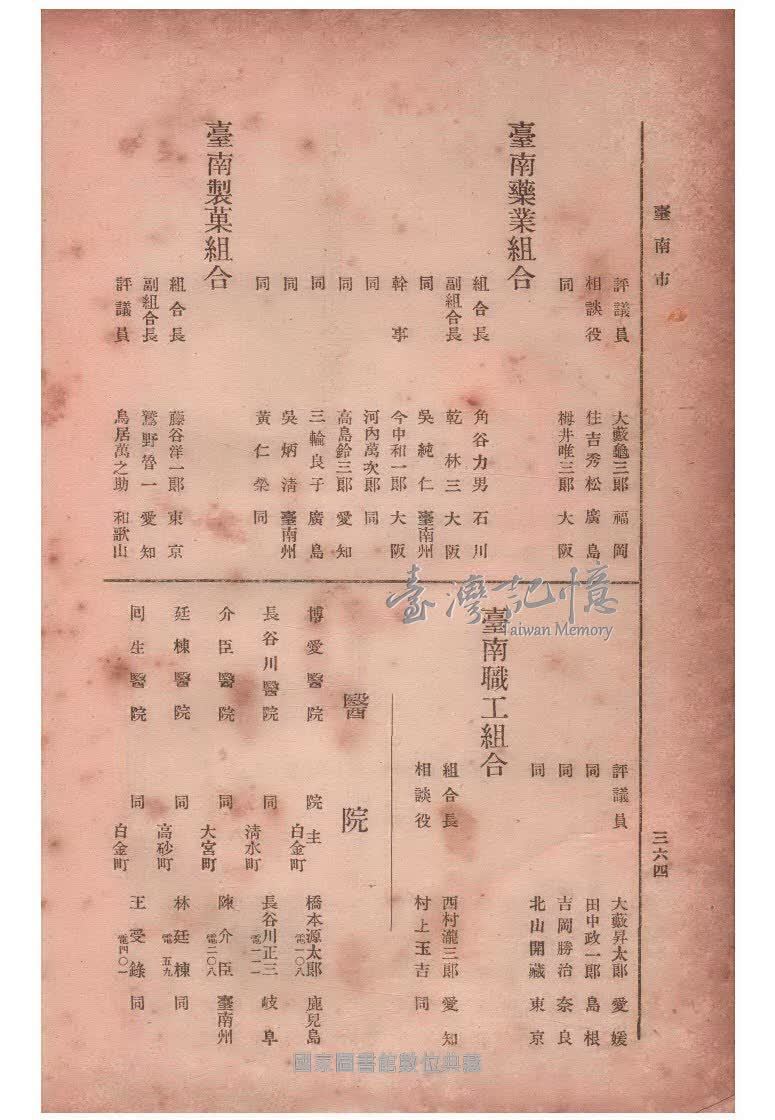 臺南市
三六四
評議員 大藪龜三郎 福岡
相談役 住吉秀松 廣島
同 栂井唯三郎 大阪
臺南藥業組合
組合長 角谷力男 石川
副組合長 乾林三 大阪
同 吳純仁 臺南州
幹事 今中和一郎 大阪
同 河內萬次郎 同
同 高島鈴三郎 愛知
同 三輪良子 廣島
同 吳炳清 臺南州
同 黃仁榮 同
臺南製菓組合
組合長 藤谷洋一郎 東京
副組合長 鷲野魯一 愛知
評議員 鳥居萬之助 和歌山
評議員 大藪昇太郎 愛媛
同 田中政一郎 島根
同 吉岡勝治 奈良
同 北山開藏 東京
臺南職工組合
組合長 西村瀧三郎 愛知
相談役 村上玉吉 同
醫院
博愛醫院 院主 橋本源太郎 鹿兒島
白金町 電一〇八
長谷川醫院 同 長谷川正三 岐阜
清水町 電一一一
介臣醫院 同 陳介臣 臺南州
大宮町 電二〇八
廷棟醫院 同 林廷棟 同
高砂町 電五九
回生醫院 同 王受祿 同
白金町 電四〇一
臺灣記憶
Taiwan Memory
國家圖書館數位典藏